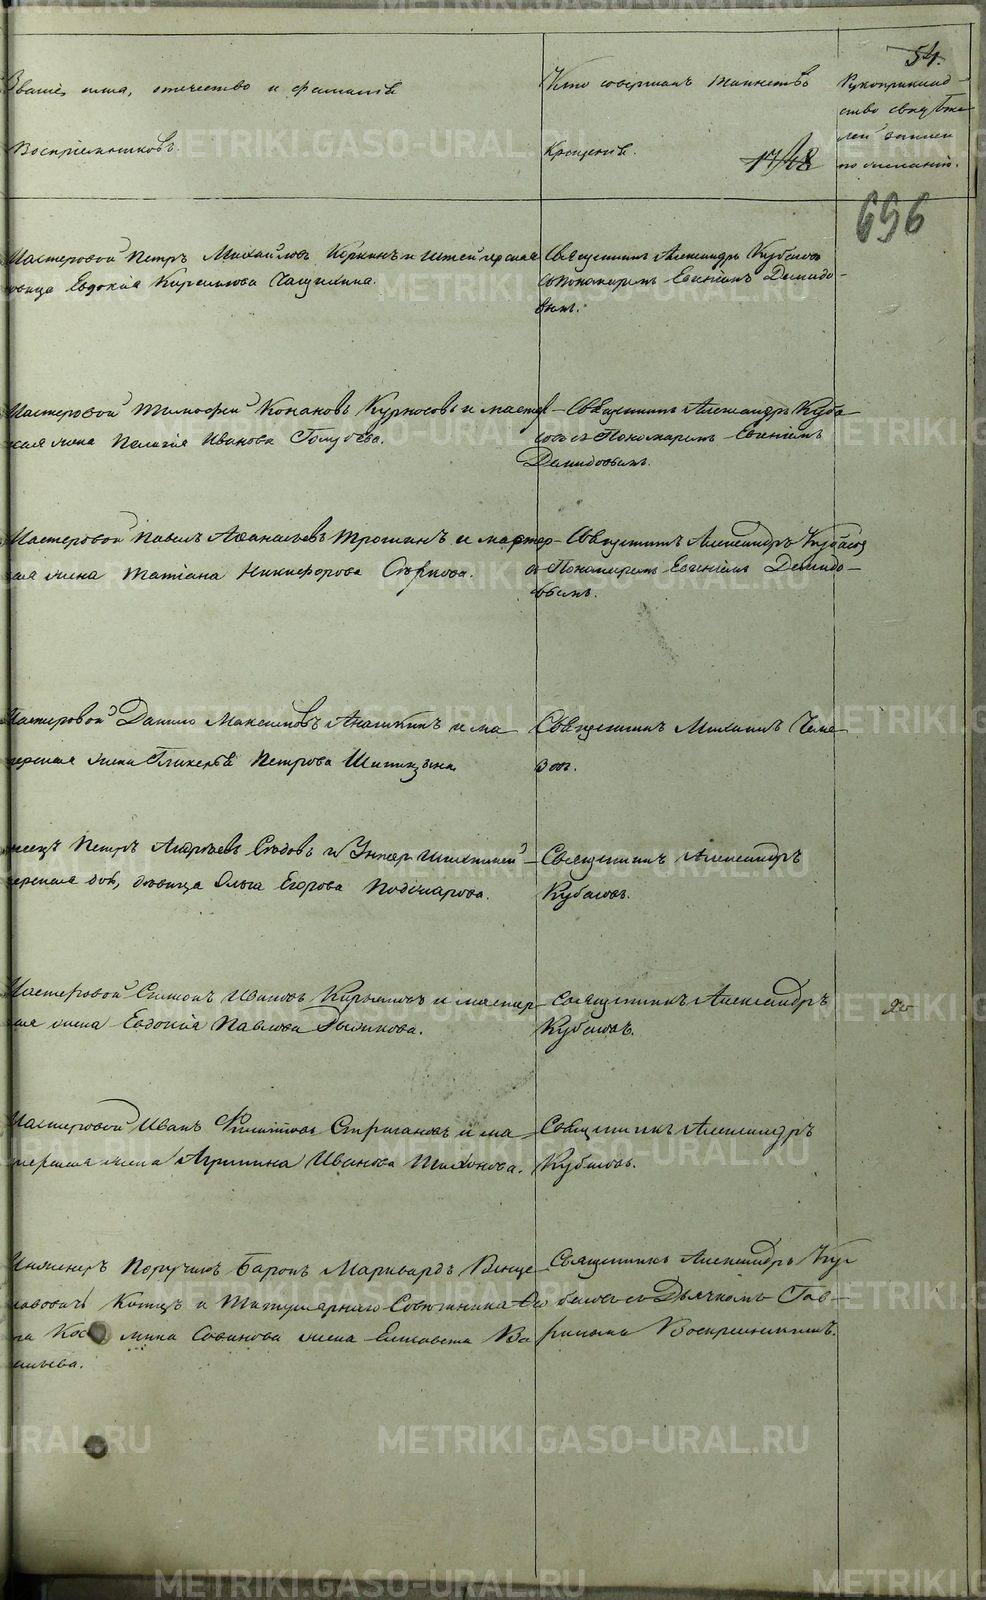 54.
Званіе, имя, отечество и фамилія
Воспріемниковъ.
Кто совершалъ таинство
Крещенія.
17/48
Рукоприклад-
ство свидѣте-
лей записи
по желанію.
696
Мастеровой Петръ Михайловъ Коркинъ и штейгерская
Евдокія Кирилова
Священникъ Александръ Кубасовъ
съ Пономаремъ Евгеніемъ Демидо-
вымъ.
Мастеровой Тимофей Конановъ Курносовъ и мастер-
ская жена Пелагія Иванова Голубева.
Священникъ Александръ Куба
совъ съ Пономаремъ Евгеніемъ
Демидовымъ.
Мастеровой Павелъ Аѳанасьевъ Трошинъ и мастер-
кая жена Татіана Никифорова
Священникъ Александръ Кубасов
съ Пономаремъ Евгеніемъ Демидо-
вымъ.
Мастеровой Данило Максимовъ и ма
терская жена Гликерія Петрова
Священникъ Михаилъ
зовъ.
Петръ Андреевъ Сѣдовъ и Унтер
дочь, дѣвица Ольга Егорова
Священникъ Александръ
Кубасовъ.
Мастеровой Симонъ Ивановъ и мастер-
кая жена Евдокія Павлова
Священникъ Александръ
Кубасовъ.
Мастеровой Иванъ Филиповъ Стригановъ и ма
терская жена Агрипина Иванова Тихонова.
Священникъ Александръ
Кубасовъ.
Инженеръ Поручикъ Баронъ Марквардъ Венце
лавовичъ Котцъ и Титулярнаго Совѣтника
Савинова жена Елисавета Ва
сильева.
Священникъ Александръ Ку
басовъ съ Дьячкомъ Гав-
риломъ Воскресенскимъ.
METRIKI.GASO-URAL.RU